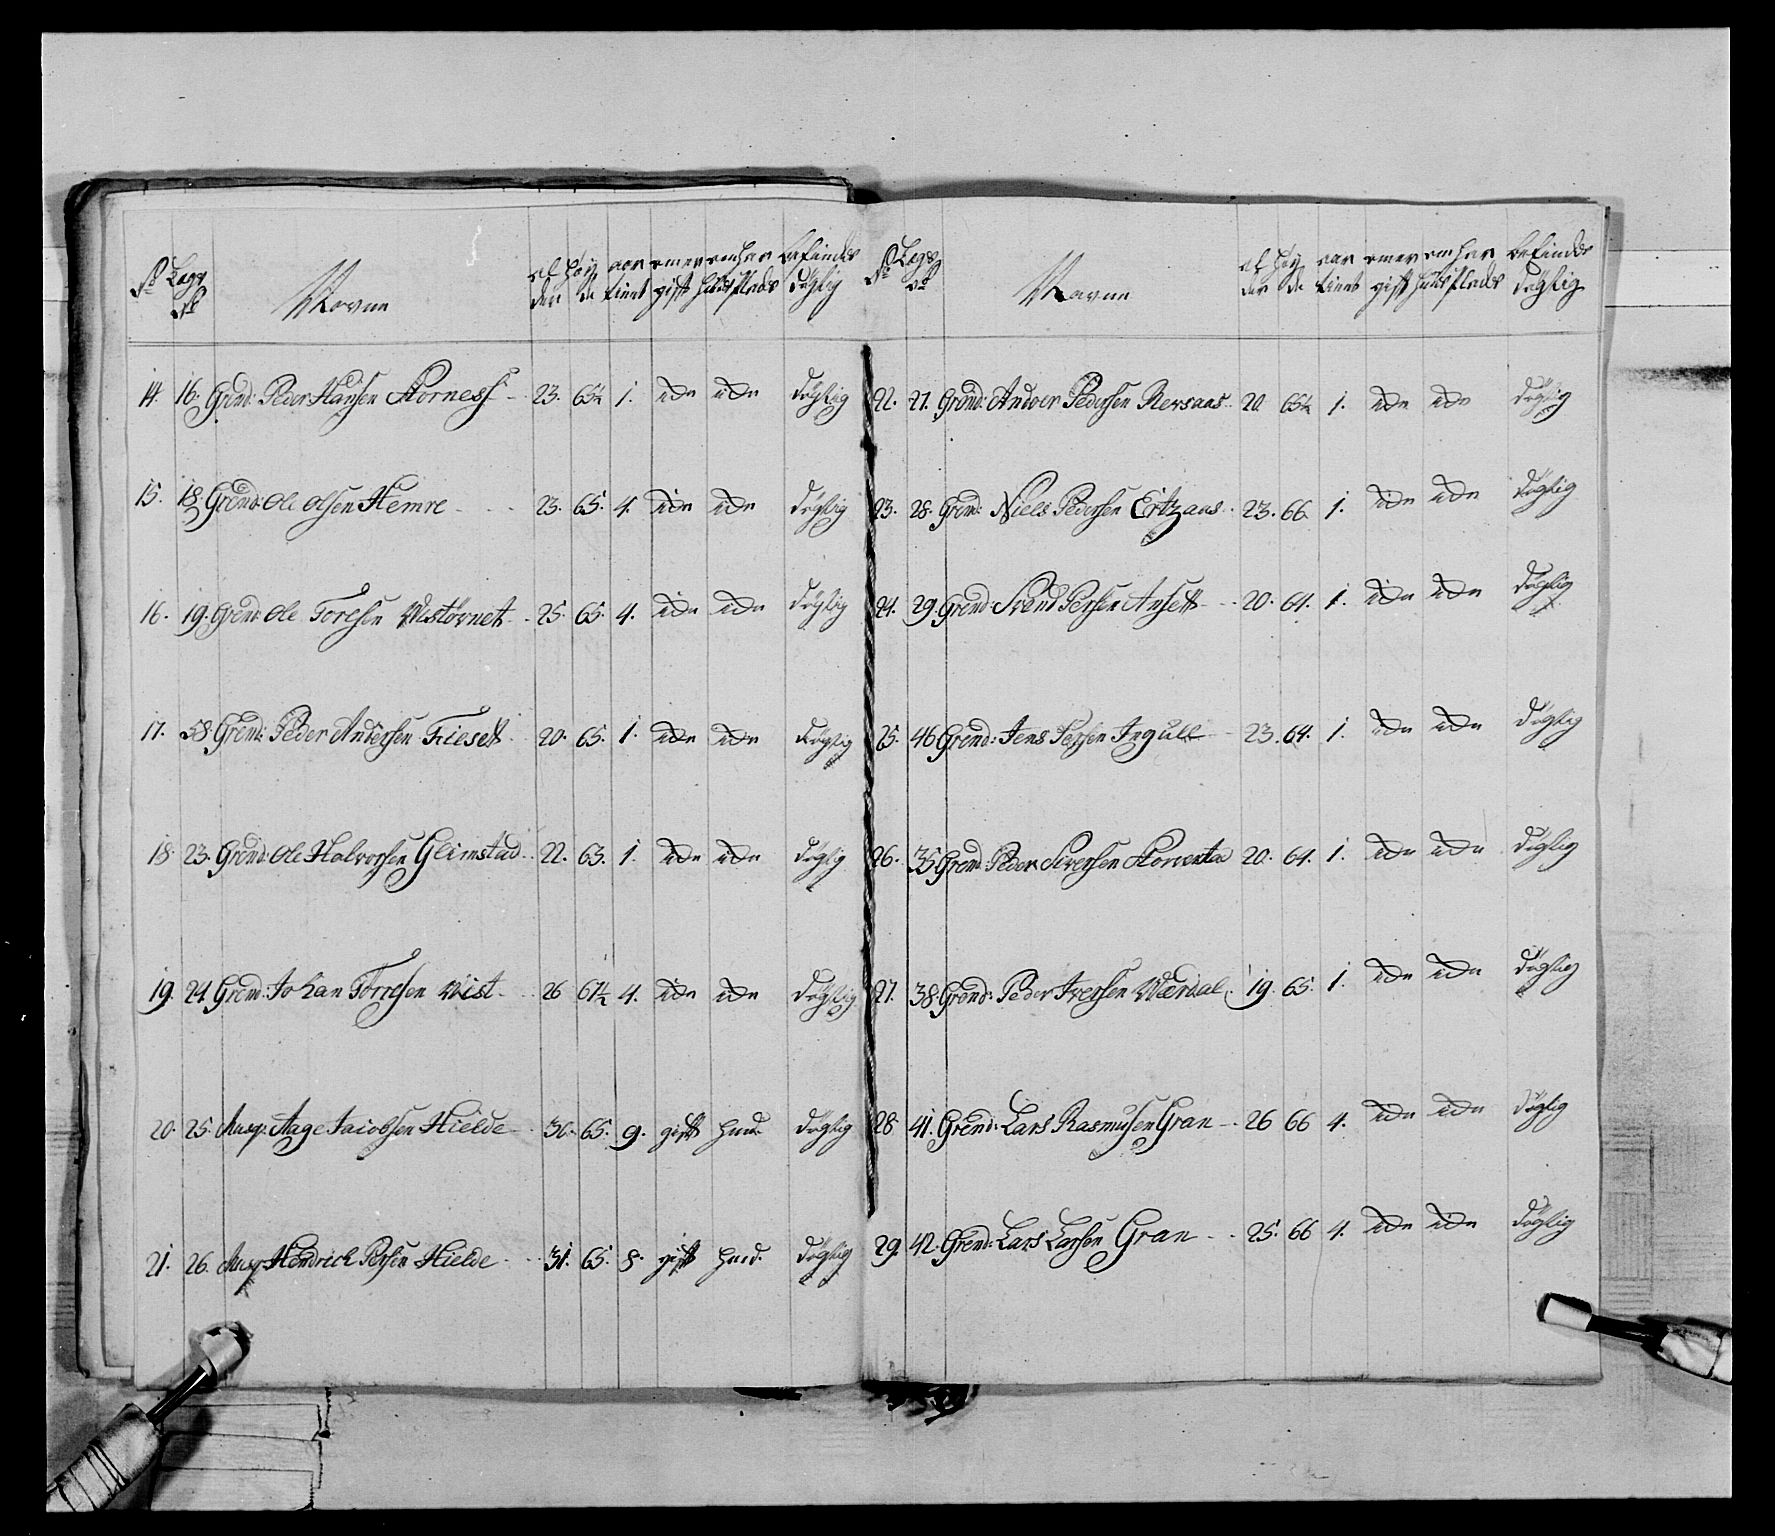 No Legs No Navne al der Høy de aar tient om er gift om har huus plads befindes dögtig
14. 16. Grend: Peder Hansen Storness 23. 65½ 1. idn idn dögtig
15. 18 Grend: Ole Olsen Hemre 23. 65. 4. idn idn dögtig
16. 19. Grend: Ole Toresen Wistörnet 25. 65. 4. idn idn dögtig
17. 58. Grend: Peder Andersen Fieset 20. 65. 1. idn idn dögtig
18. 23. Grend: Ole Halvorsen Glimstad 22. 63. 1. idn idn dögtig
19. 24. Grend: Johan Torresen Wist 26 67½ 4. idn idn dögtig
20. 25. Musq: Aage Jacobsen Hielde 30. 65. 9. gift huus dögtig
21. 26. Musq: Hendrich Persen Hielde 31. 65. 8. gift huus dögtig
No Legs No Navne al der Høy de aar tient om er gift om har huus plads befindes dögtig
22. 27. Grend: Andor Pedersen Rersaas 20. 65½ 1. idn idn dögtig
23. 28. Grend: Niels Pedersen Ertzaas 23. 66. 1. idn idn dögtig
24. 29. Grend: Svend Persen Ansett 20. 64. 1. idn idn dögtig
25. 46 Grend: Jens Persen Ingull 23. 64. 1. idn idn dögtig
26. 35 Grend: Peder Siversen 20. 64. 1. idn idn dögtig
27. 38. Grend: Peder Iversen Wærdal 19. 65. 1. idn idn dögtig
28. 41. Grend: Lars Rasmusen Gran 26 66 4. idn idn dögtig
29. 42. Grend: Lars Larsen Gran 25. 66 4. idn idn dögtig